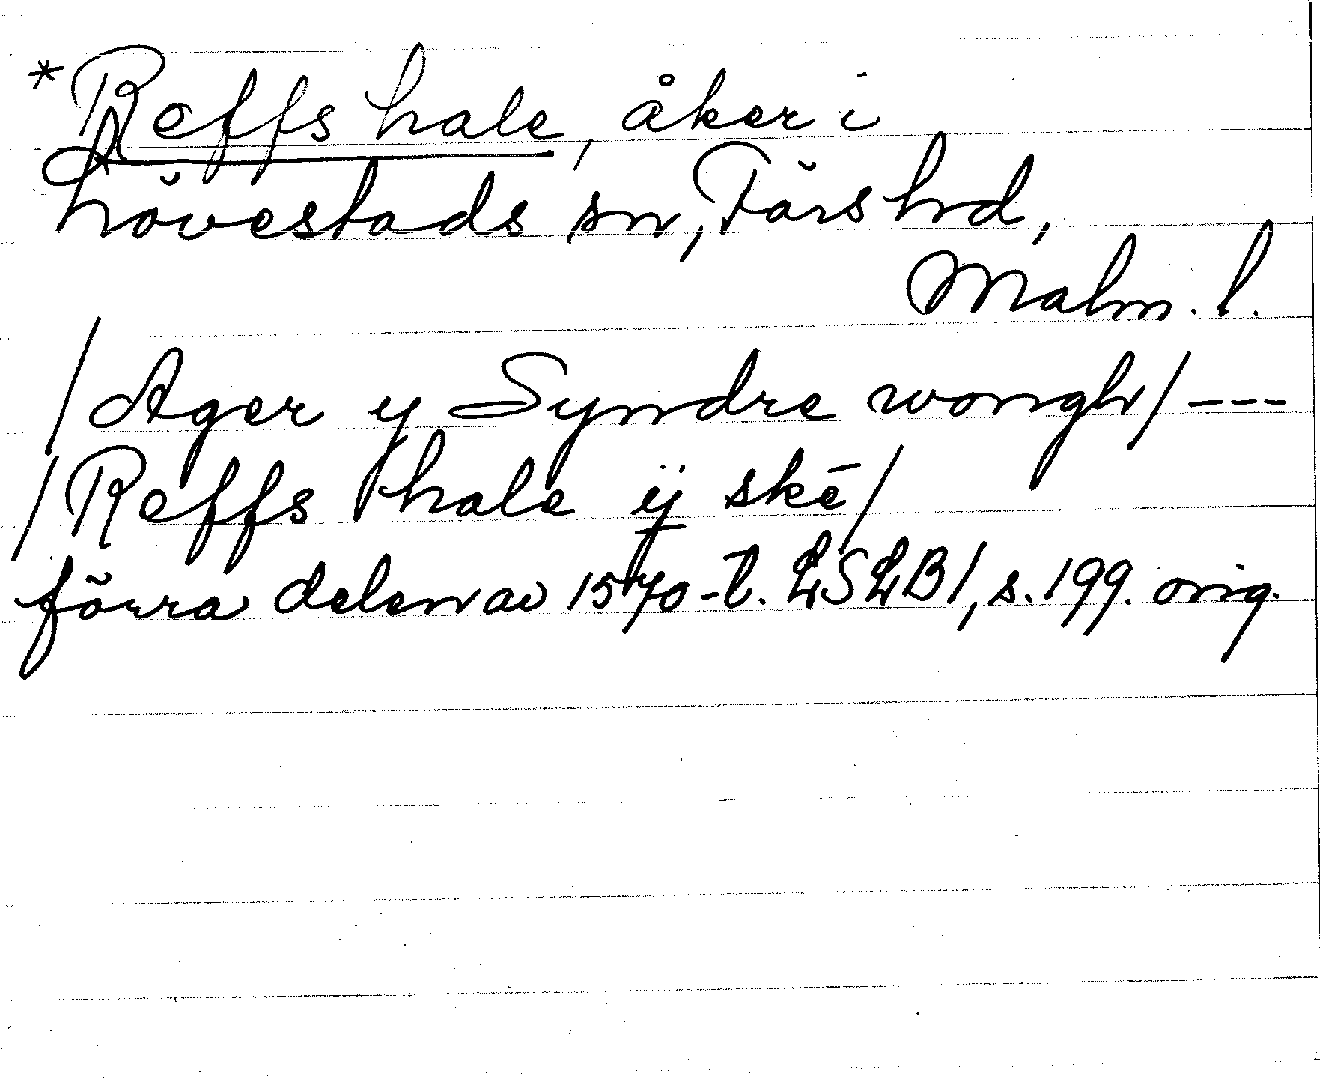 *Reffs hale, åker i
Lövestads sn, Färs hd,
Malm. l.
/Ager y Syndre wongh/ ---
/Reffs hale ij skē/
förra delen av 1570-t. LSLB1, s. 199. orig.